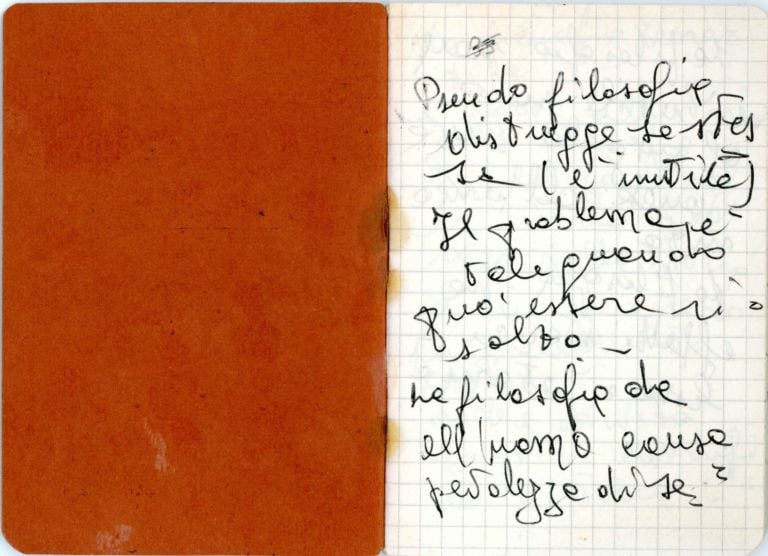 Pseudo filosofia
distrugge se stes
sa (è inutile)
Il problema è
tale quando
può essere ri=
solto —
La filosofia da
all'uomo consa
pevolezza di se